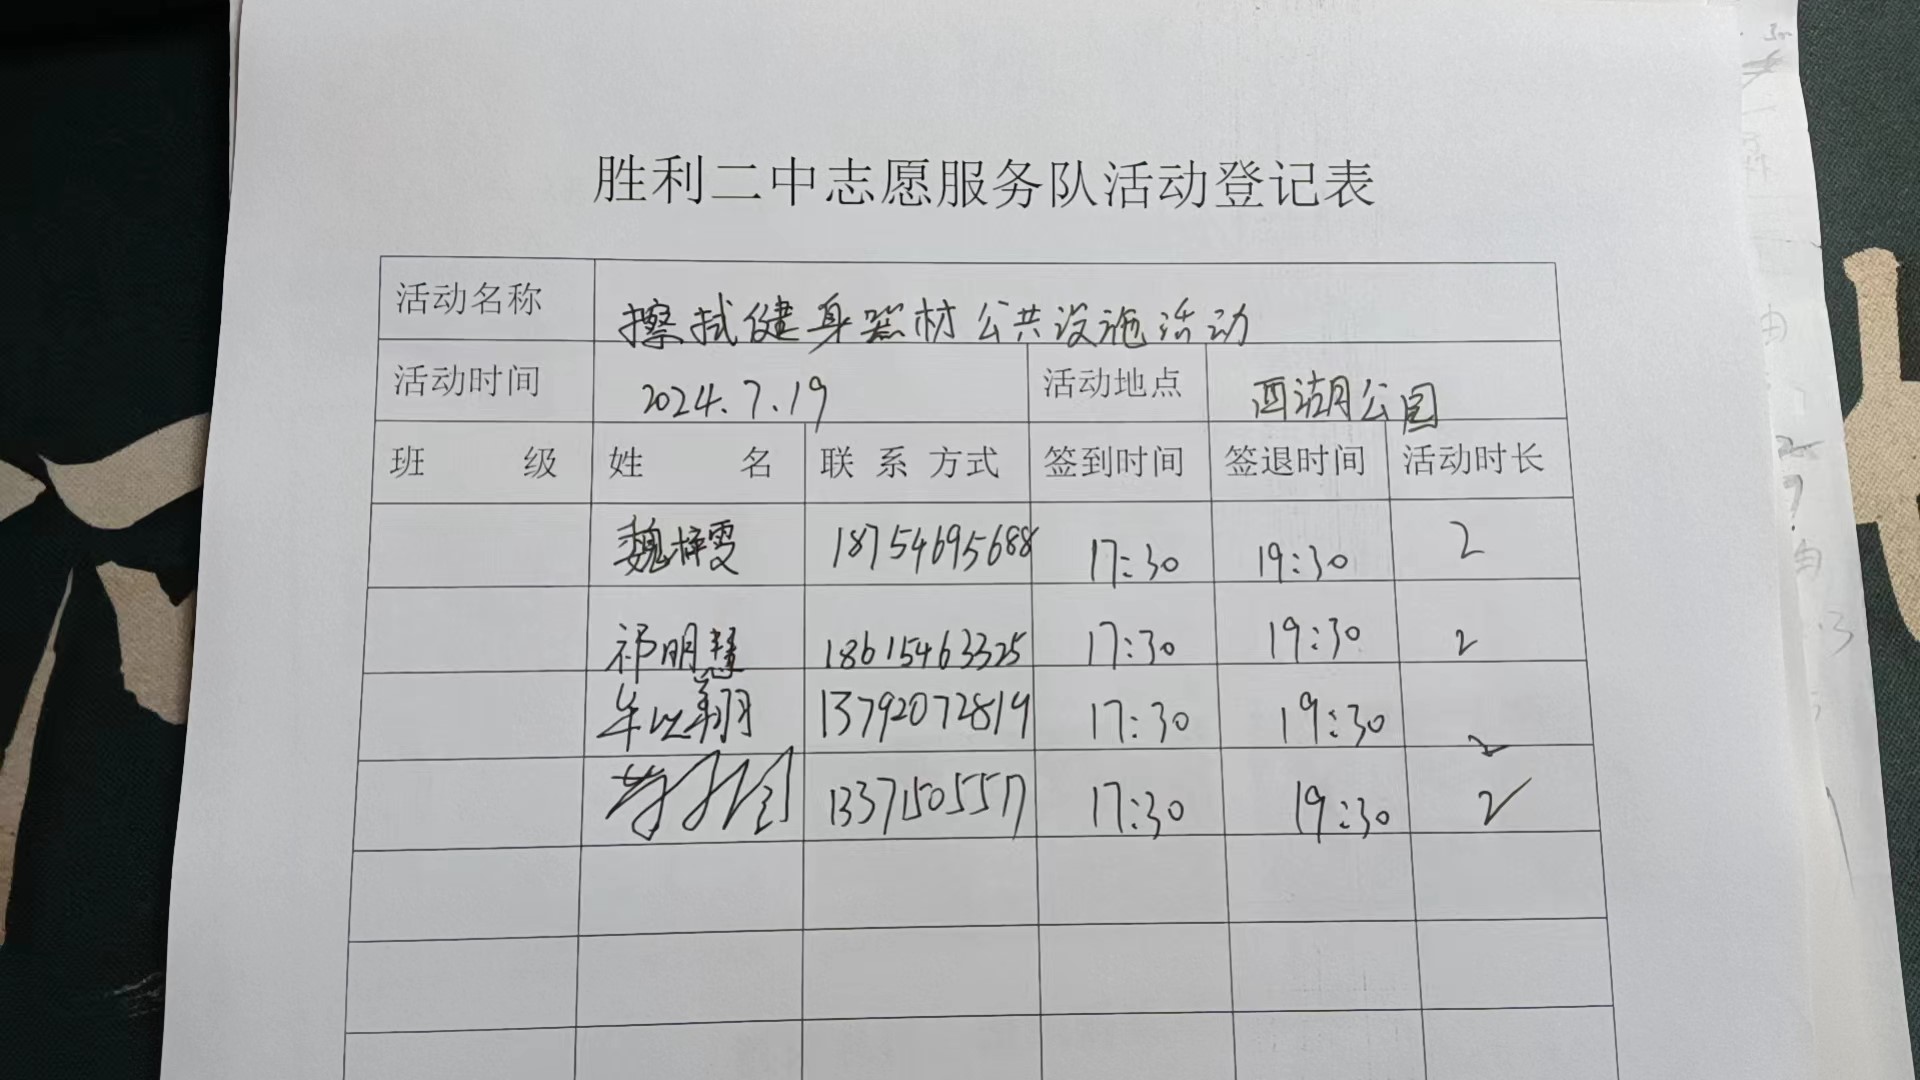 胜利二中志愿服务队活动登记表
活动名称 擦拭健身器材公共设施活动
活动时间 2024.7.19 活动地点 西湖公园
班 级 姓 名 联 系 方式 签到时间 签退时间 活动时长
魏梓雯 18754695688 17:30 19:30 2
祁明慧 18615463325 17:30 19:30 2
牟以翔 13792072819 17:30 19:30 2
17:30 19:30 2